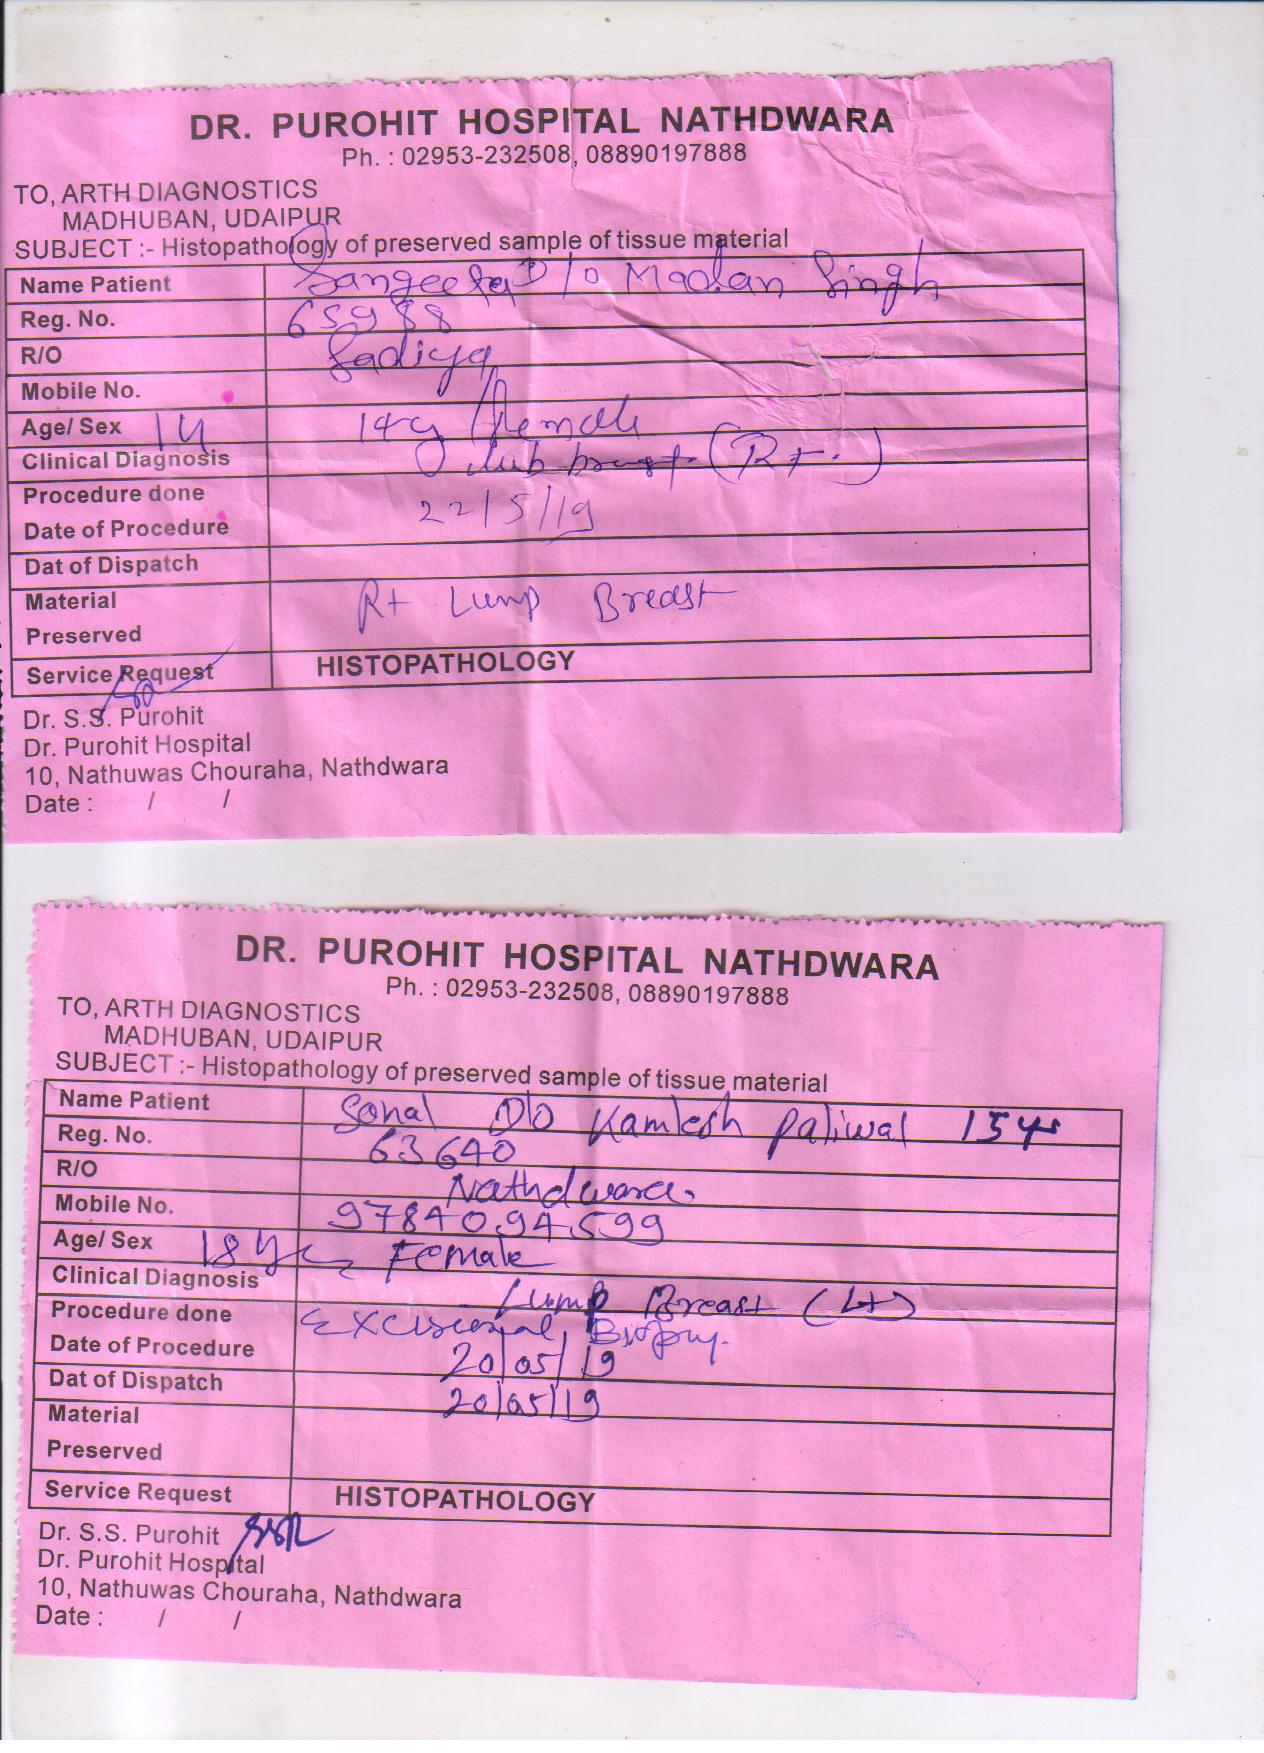 DR. PUROHIT HOSPITAL NATHDWARA
Ph. : 02953-232508, 08890197888
TO, ARTH DIAGNOSTICS
MADHUBAN, UDAIPUR
SUBJECT :- Histopathology of preserved sample of tissue material
Name Patient Sangeeta D/o Madan Singh
Reg. No. 65988
R/O Sadiya
Mobile No.
Age/ Sex 14 14y /Female
Clinical Diagnosis breast (Rt.)
Procedure done
Date of Procedure 22/5/19
Dat of Dispatch
Material Rt Lump Breast
Preserved
Service Request HISTOPATHOLOGY
Dr. S.S. Purohit
Dr. Purohit Hospital
10, Nathuwas Chouraha, Nathdwara
Date : / /
DR. PUROHIT HOSPITAL NATHDWARA
Ph. : 02953-232508, 08890197888
TO, ARTH DIAGNOSTICS
MADHUBAN, UDAIPUR
SUBJECT :- Histopathology of preserved sample of tissue material
Name Patient Sonal D/o Kamlesh Paliwal 15yr
Reg. No. 63640
R/O Nathdwara
Mobile No. 9784094599
Age/ Sex 18 yr Female
Clinical Diagnosis Lump Breast (Lt)
Procedure done Excisional Biopsy.
Date of Procedure 20/05/19
Dat of Dispatch 20/05/19
Material
Preserved
Service Request HISTOPATHOLOGY
Dr. S.S. Purohit
Dr. Purohit Hospital
10, Nathuwas Chouraha, Nathdwara
Date : / /